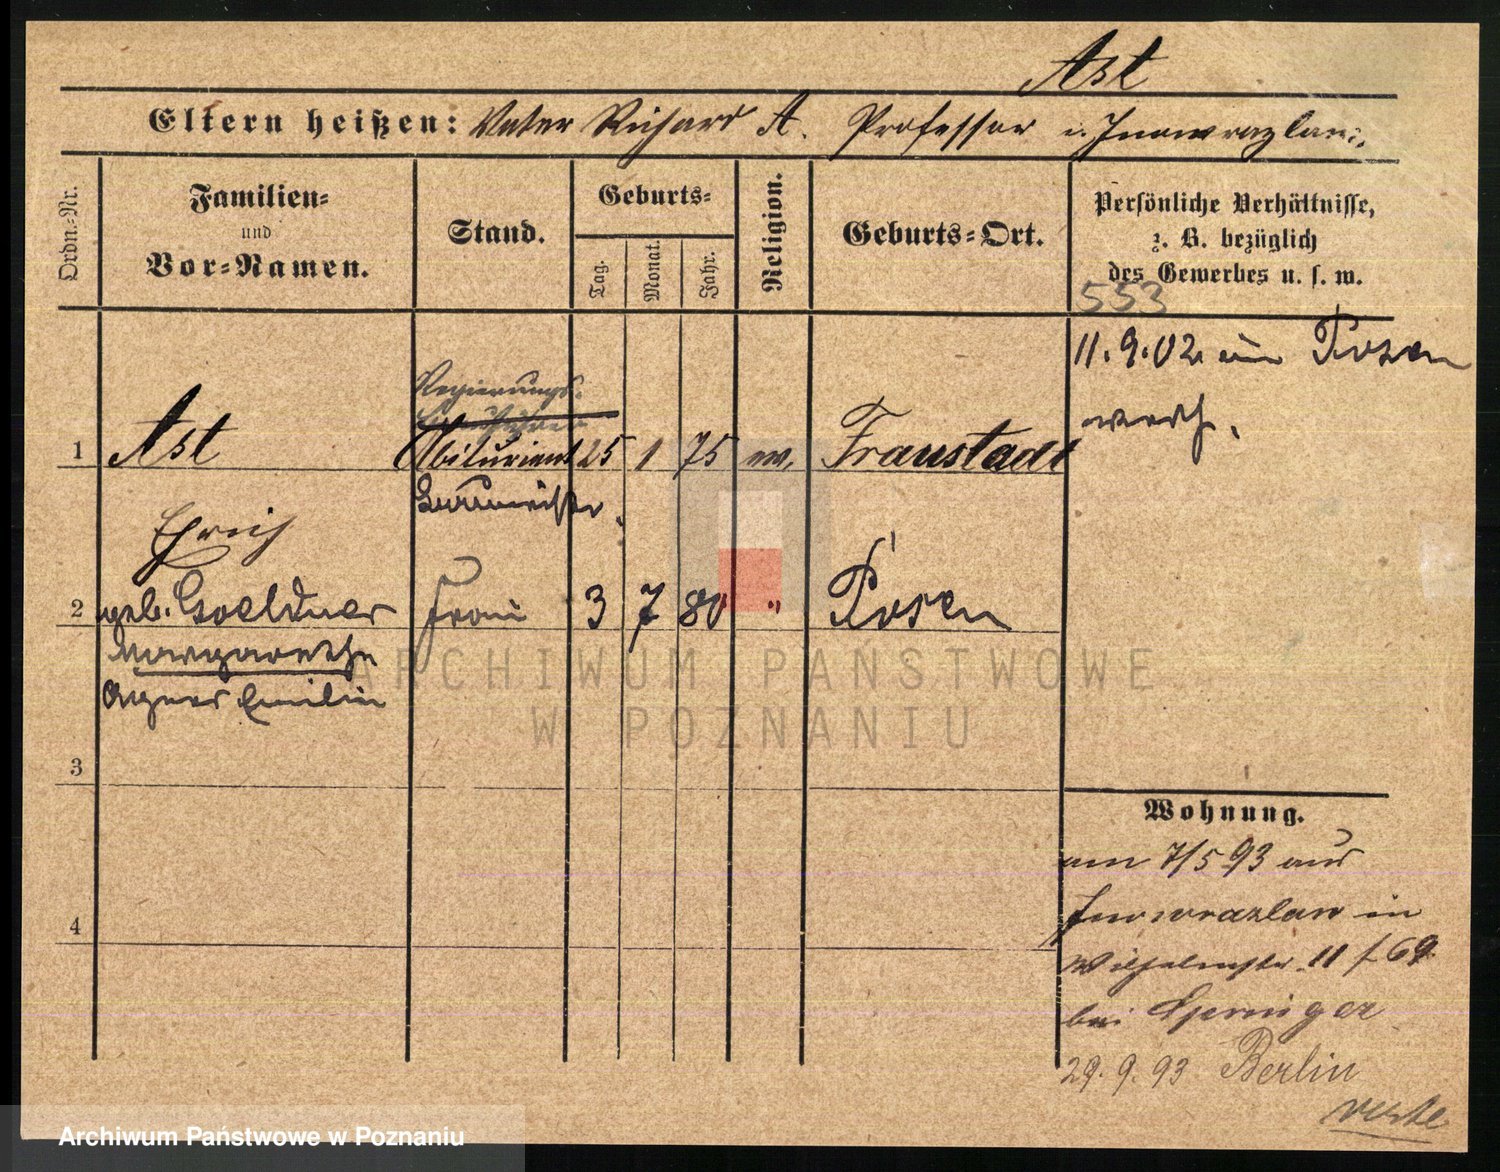 Ast
Eltern heißen: Vater Richard A. Professor i. Inowrazlaw.
Ordn.-Nr.
Familien-
und
Vor-Namen.
Stand.
Geburts-
Tag.
Monat.
Jahr.
Religion.
Geburts-Ort.
Persönliche Verhältnisse,
z. B. bezüglich
des Gewerbes u. s. w.
553
11.9.02 in Posen
verh.
Regierungs-
1 Ast Abiturient 25 1 75 ev. Fraustadt
Baumeister.
Erich
2 geb. Goeldner Frau 3 7 80 " Posen
Margarethe
Agnes Emilie
3
4
Wohnung.
am 7/5 93 aus
Inowrazlaw in
Wilhelmstr. 11 f 69
bei
29.9.93 Berlin
ARCHIWUM PAŃSTWOWE
W POZNANIU
Archiwum Państwowe w Poznaniu